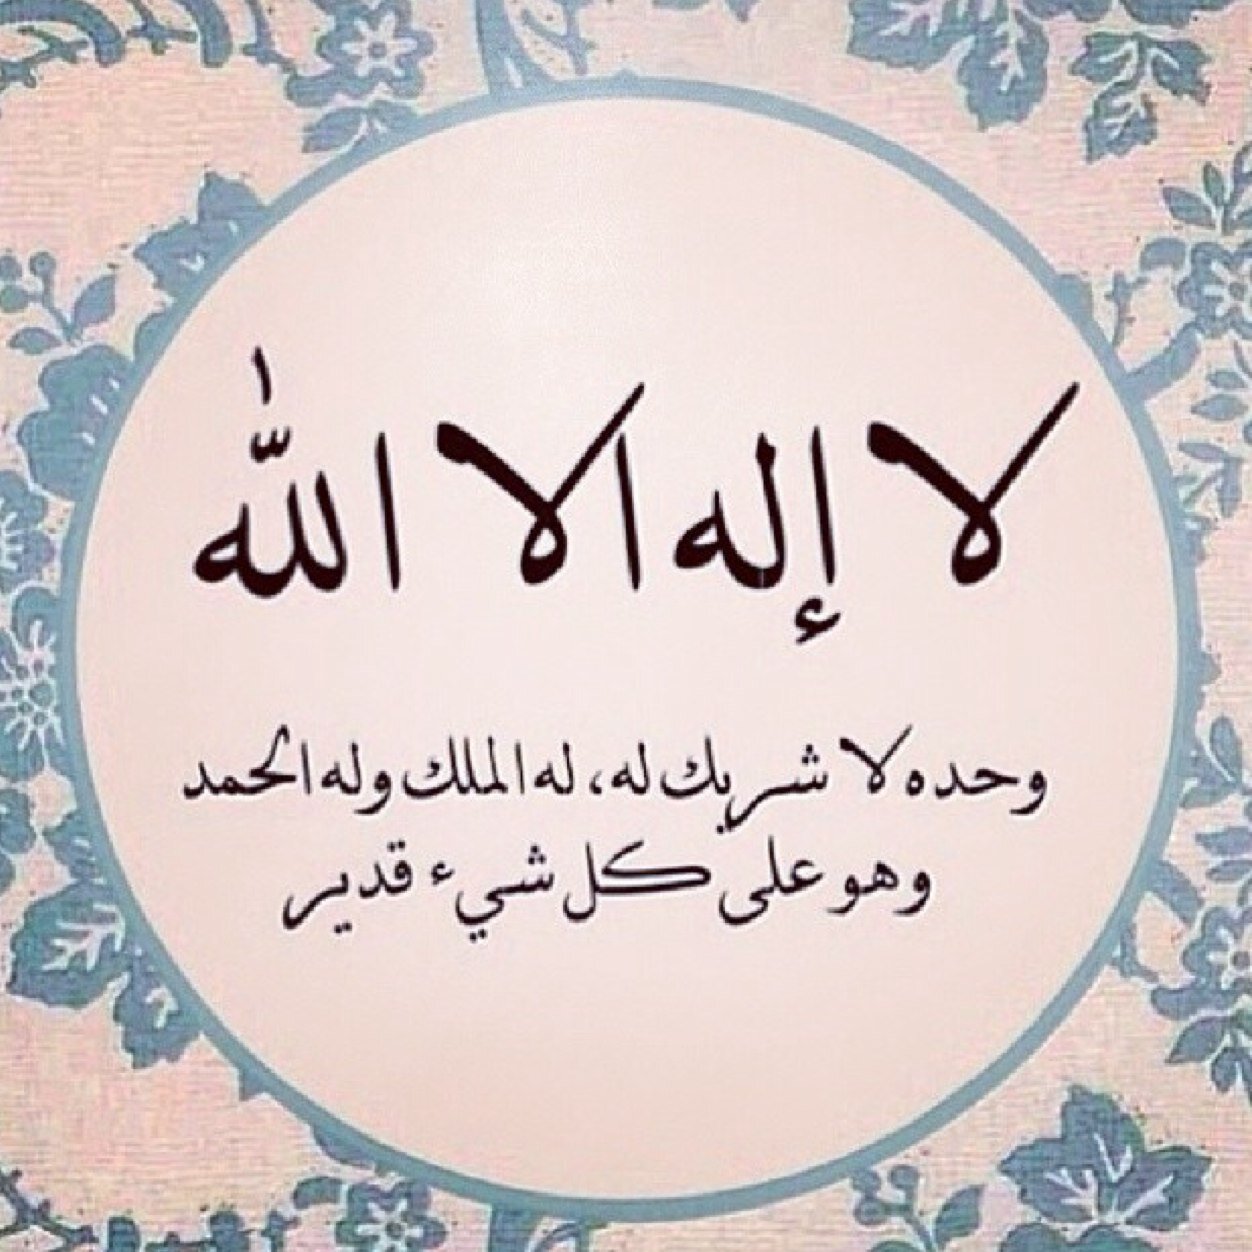 لا إله الا اللّٰه
وحده لا شريك له، له الملك وله الحمد
وهو على كل شيء قدير